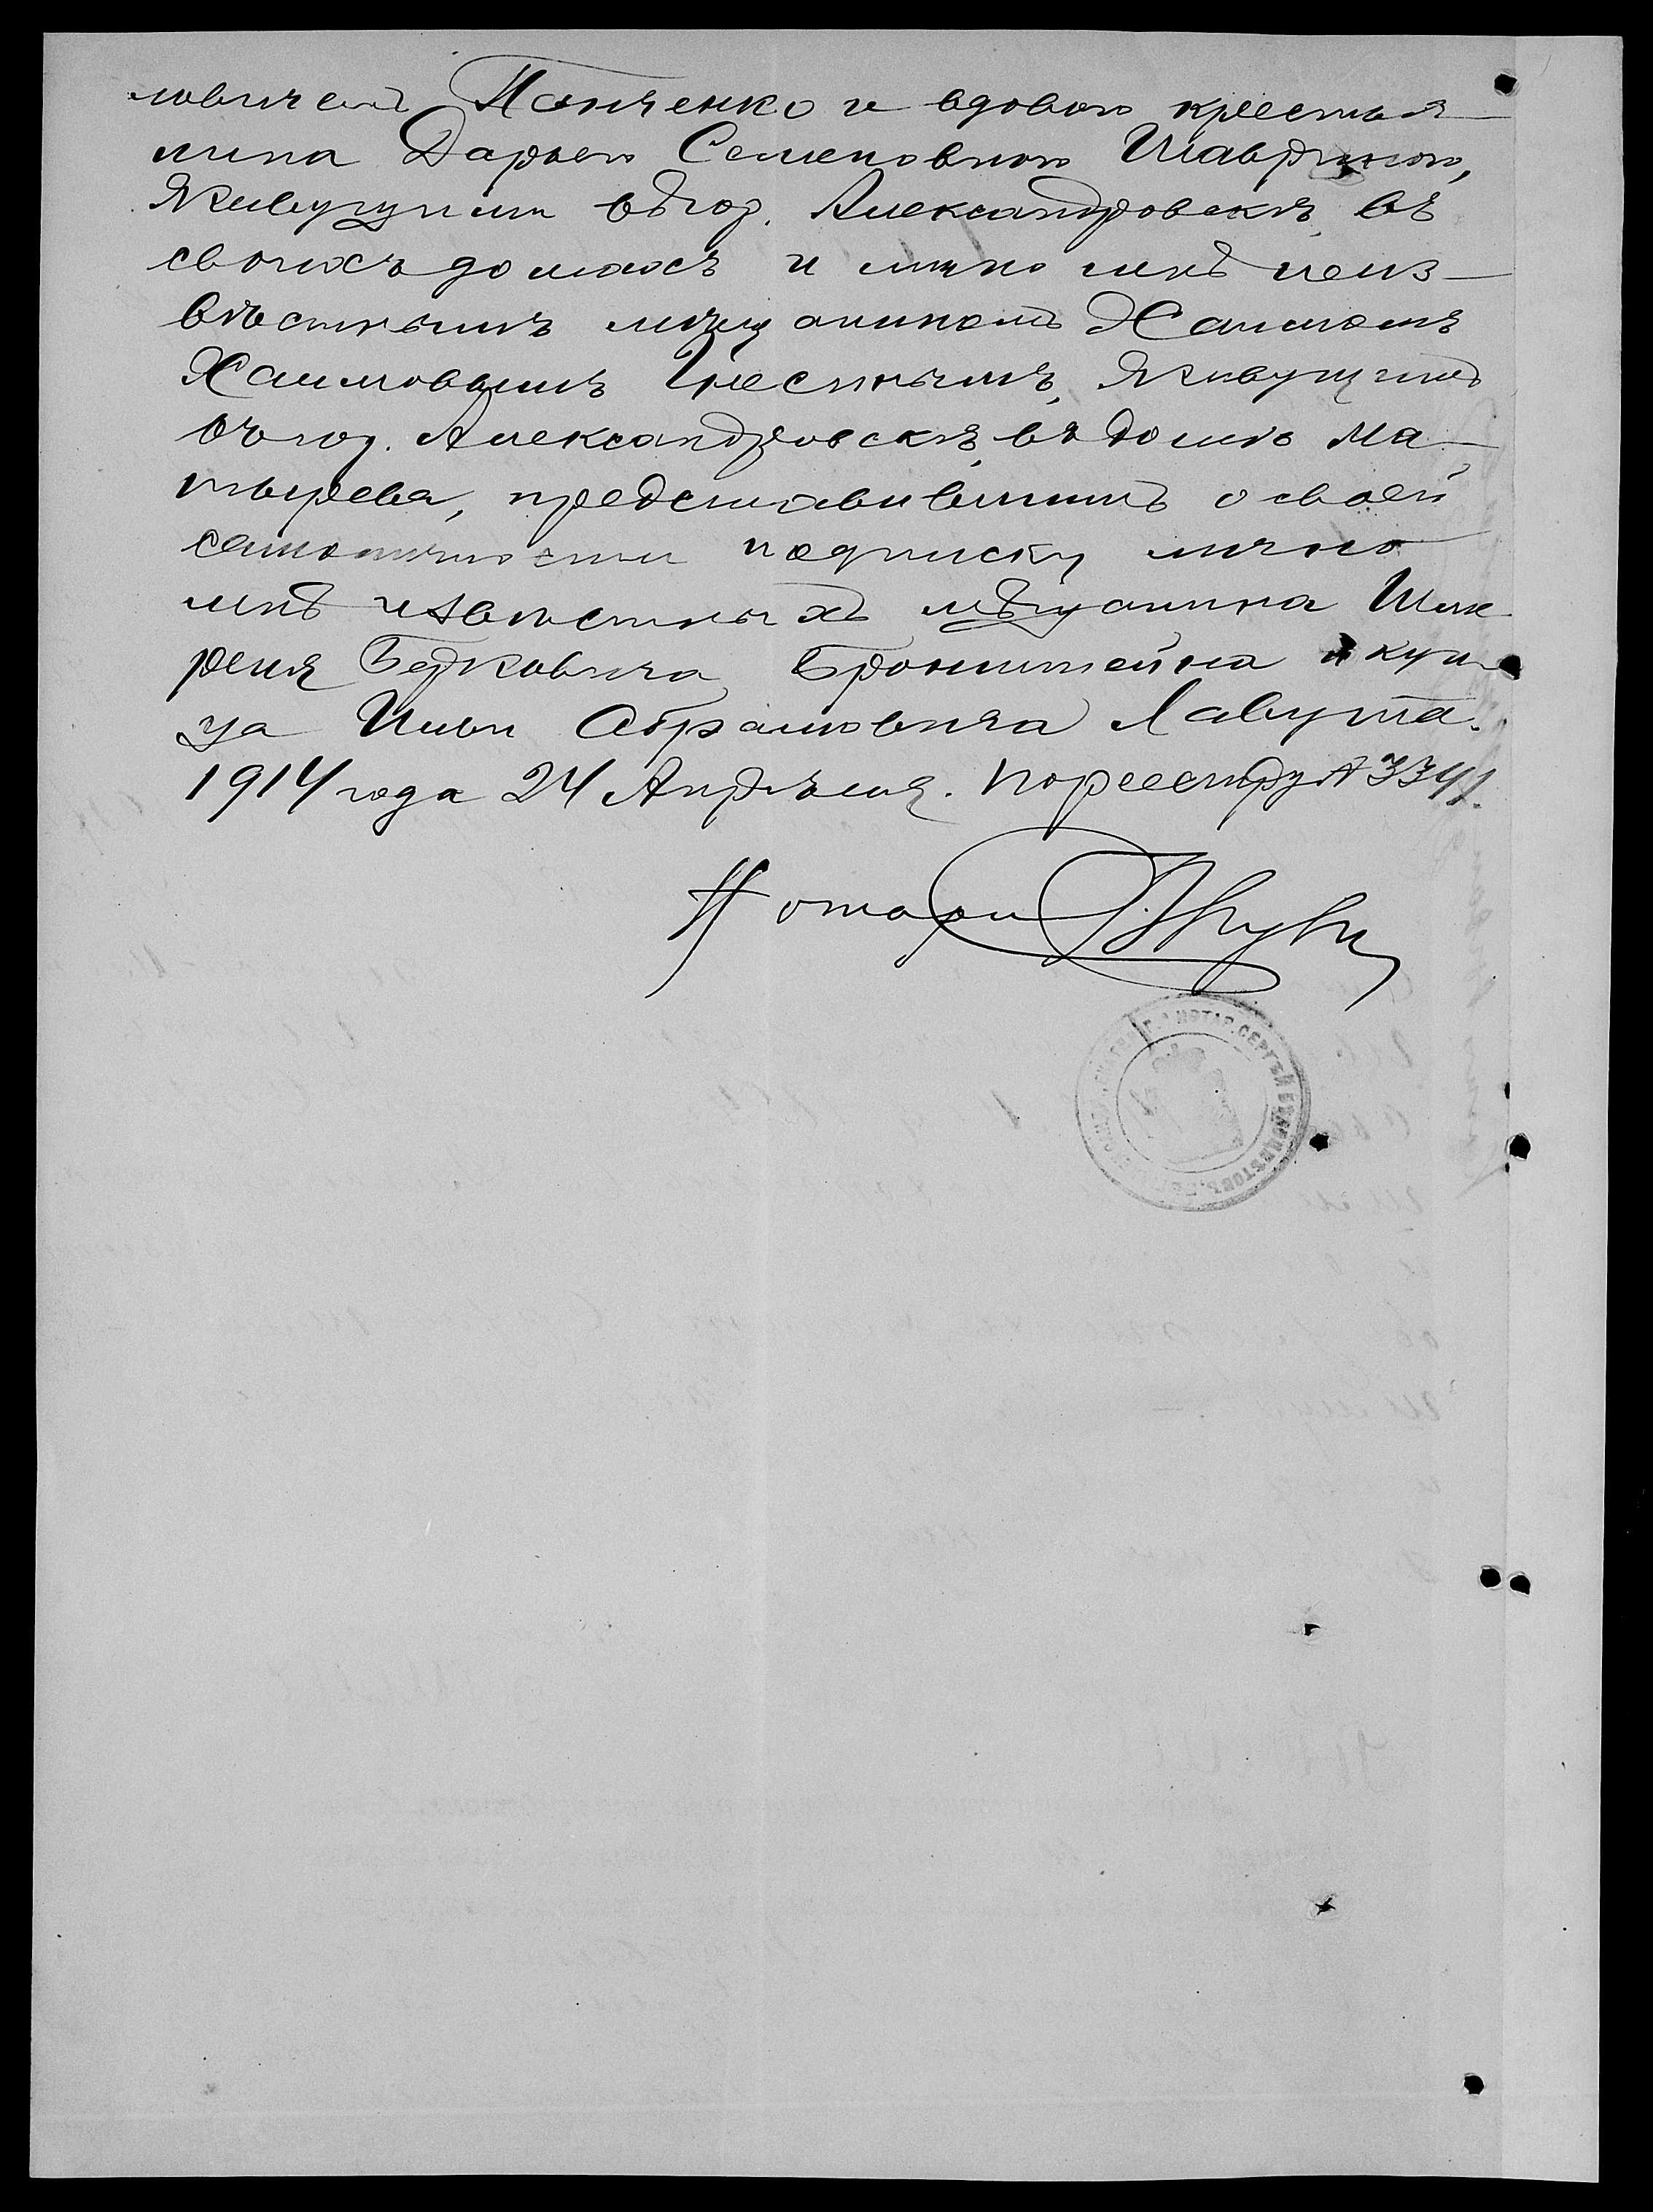 ловичемъ Панченко и вдовою крестья-
нина Дарьею Семеновною Шавриною,
живущими въ гор. Александровскѣ, въ
своихъ домахъ и лично мнѣ неиз-
вѣстнымъ мѣщаниномъ Хаимомъ
Хаимовымъ Честнымъ, живущимъ
въ гор. Александровскѣ, въ домѣ Ма-
тырева, представившимъ о своей
самоличности подписку лично
мнѣ извѣстныхъ мѣщанина
Берковича Бронштейна и куп-
ца Абрамовича Лавута.
1914 года 24 Апрѣля. По реестру № 3341.
Нотари
НОТАР. СЕРГѢЙ